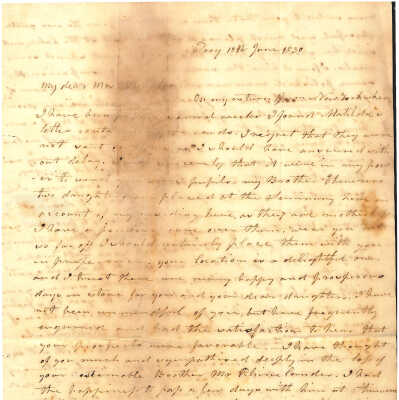 Troy 18th June 1830
My dear Mrs
On my return from New York where
I have been several weeks I found Matilda's
letter I regret that they were
not sent I should have answered with
out delay. that it were in my pow
er pupils my Brother
two daughters placed at the Seminary here on
account of my residing here, as they are motherless
I have a over them, were you not
so far off I should certainly place them with you
in your location is a delightful one
and I trust there are many happy and prosperous
days in store for you and your dear daughters. I have
not been unmindful of you, but have frequently
enquired and had the satisfaction to hear that
your prospects were favorable. I have thought
of you much and sympathized deeply in the loss of
your estimable Brother Mr I had
the happiness to pass a few days with him at